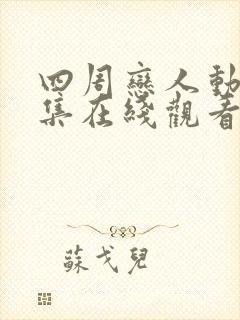 四周戀人動
集在綫觀看
蘇戈兒